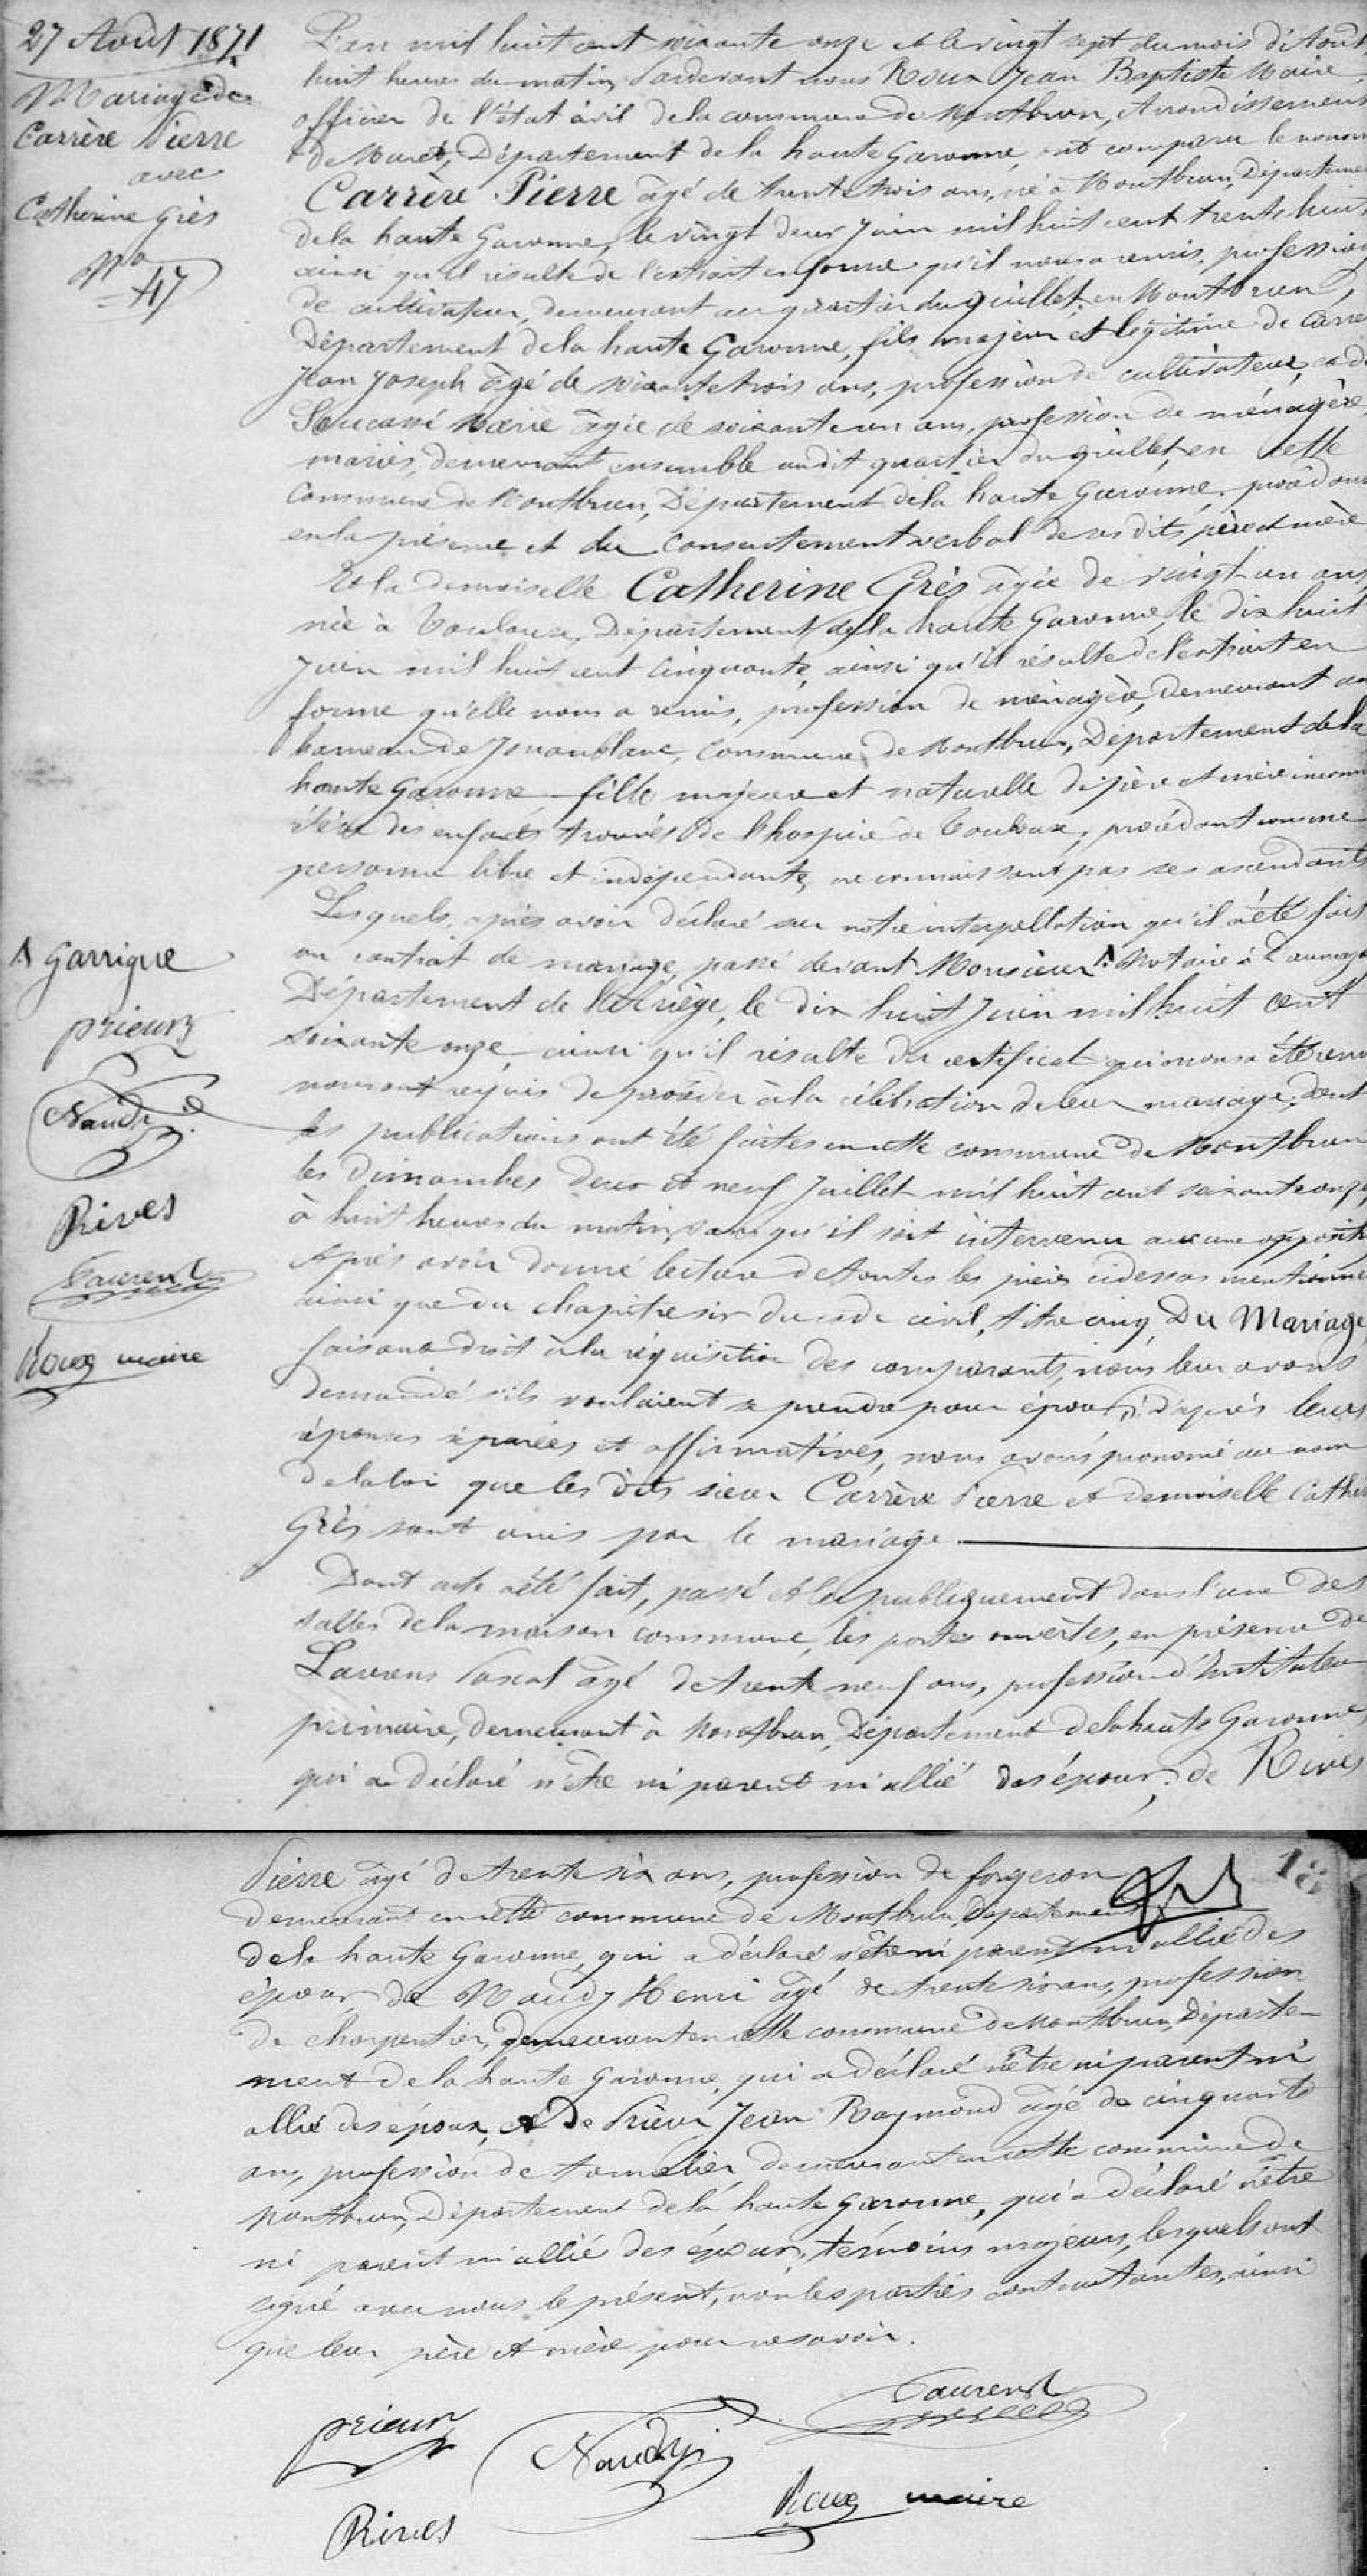 27 Août 1871
Mariage de
Carrère Pierre
avec
Catherine Grès
No
=47
L'an mil huit cent soixante onze et le vingt sept du mois d'Août
huit heures du matin, Pardevant nous Roux Jean Baptiste Maire,
officier de l'état civil de la commune de Montbrun, Arrondissement
de Muret, Département de la haute Garonne, est comparu le nommé
Carrère Pierre âgé de trente trois ans, né à Montbrun, Départeme
de la haute Garonne, le vingt deux Juin mil huit cent trente huit
ainsi qu'il résulte de l'extrait en forme qu'il nous a remis, profession
de cultivateur, demeurant au quartier du Guillet en Montbrun,
Département de la haute Garonne, fils majeur et légitime de Carrè
Jean Joseph âgé de soixante trois ans, profession de cultivateur, et de
Soucassé Marie âgée de soixante un ans, profession de ménagère
mariés, demeurant ensemble audit quartier du guillet, en cette
Commune de Montbrun, Département de la haute Garonne, procédant
en la présence et du Consentement verbal de ses dits père et mère
Et la demoiselle Catherine Grès âgée de vingt un ans
née à Toulouse, Département de la haute Garonne, le dix huit
Juin mil huit cent cinquante, ainsi qu'il résulte de l'extrait en
forme qu'elle nous a remis, profession de ménagère, demeurant au
hameau de Jouanblanc, Commune de Montbrun, Département de la
haute Garonne fille majeure et naturelle de père et mère inconnu
élève des enfants trouvés de l'hospice de Toulouse, procédant comme
personne libre et indépendante, ne connaissant pas ses ascendants
Lesquels, après avoir déclaré sur notre interpellation qu'il a été fait
un contrat de mariage, passé devant Monsieur Λ Notaire à Daumaza
Département de l'Ariège, le dix huit Juin mil huit cent
soixante onze, ainsi qu'il résulte du certificat qui nous a été remi
nous ont requis de procéder à la célébration de leur mariage, dont
les publications ont été faites en cette commune de Montbrun
les Dimanches deux et neuf Juillet mil huit cent soixante onze
à huit heures du matin, sans qu'il soit intervenu aucune oppositi
Après avoir donné lecture de toutes les pièces ci dessus mentionné
ainsi que du chapitre six du code civil, titre cinq, Du Mariage
faisant droit à la réquisition des comparants, nous leur avons
demandé s'ils voulaient se prendre pour époux, d'après leurs
réponses séparées et affirmatives, nous avons prononcé au nom
de la loi que les dits sieur Carrère Pierre et demoiselle Cather
Grès sont unis par le mariage.
Λ Garrigue
prieur
Naudy
Rives
Laurens
Roux maire
Dont acte a été fait, passé et lu publiquement dans l'une des
salles de la maison commune, les portes ouvertes, en présence de
Laurens Pascal âgé de trente neuf ans, profession d'Instituteur
primaire, demeurant à Montbrun, Département de la haute Garonne
qui a déclaré n'être ni parent ni allié des époux; de Rives
18
Pierre âgé de trente six ans, profession de forgeron
demeurant en cette commune de Montbrun, Département
de la haute Garonne, qui a déclaré n'être ni parent ni allié des
époux de Naudy Henri âgé de trente six ans, profession
de charpentier, demeurant en cette commune de Montbrun, Départe-
ment de la haute Garonne, qui a déclaré n'être ni parent ni
allié des époux, et De Prieur Jean Raymond âgé de cinquante
ans, profession de tonnelier, demeurant en cette commune de
Montbrun, Département de la haute Garonne, qui a déclaré n'être
ni parent ni allié des époux, témoins majeurs, lesquels ont
signé avec nous le présent, non les parties contractantes, ainsi
que leur père et mère pour ne savoir.
prieur
Naudy
Laurens
Rives
Roux maire